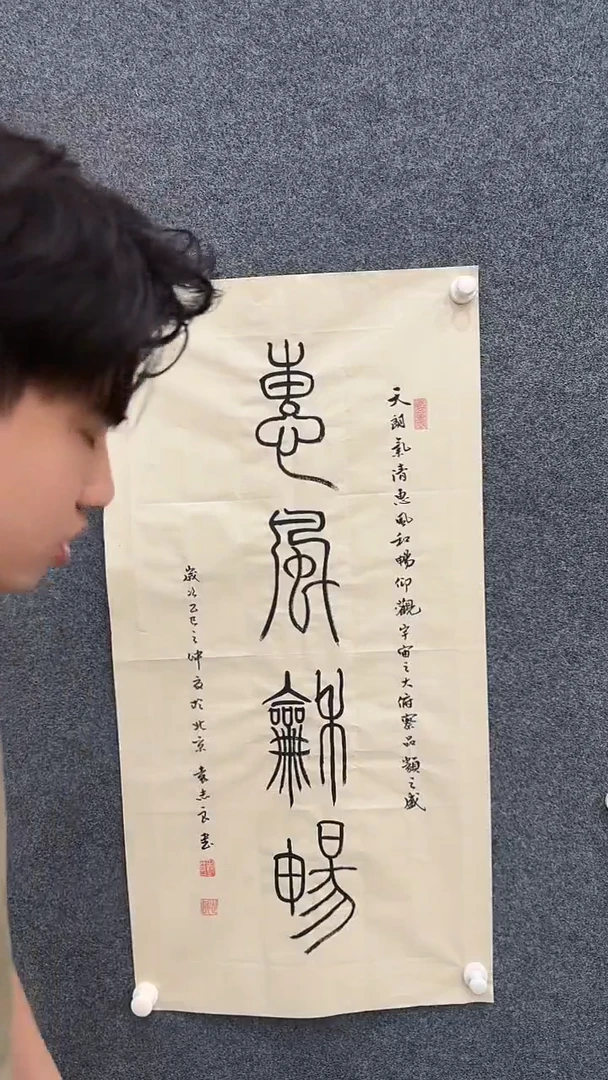 天朗氣清惠風和暢仰觀宇宙之大俯察品類之盛
惠風龢暢
歲次乙巳之仲夏於北京袁志良書